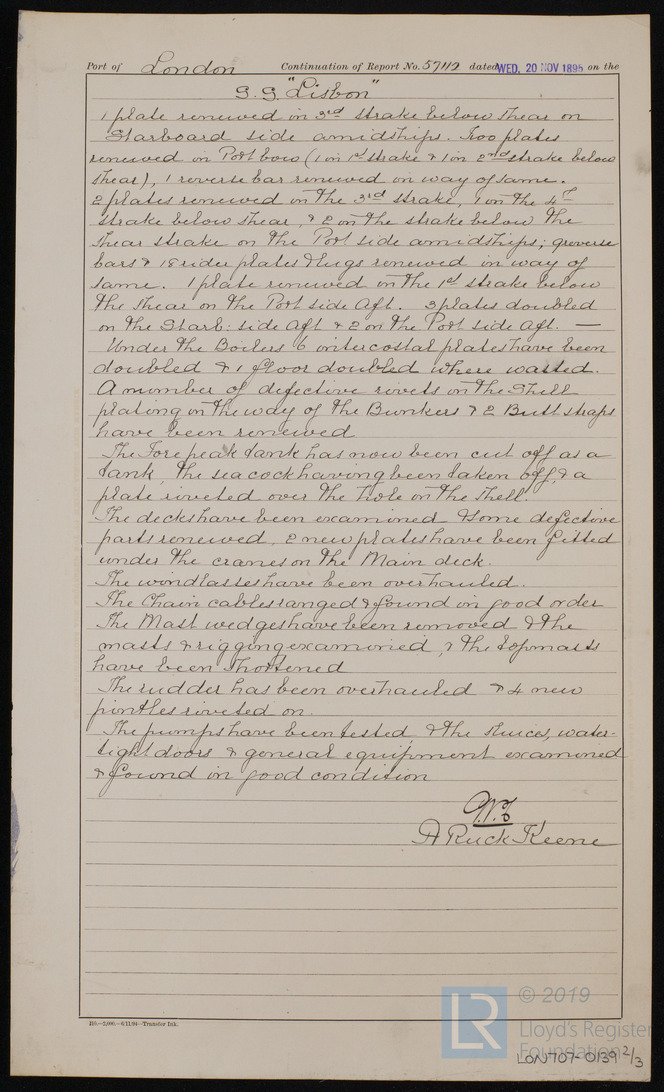 Port of London Continuation of Report No. 57112 dated WED. 20 NOV 1895 on the
S.S. "Lisbon"
1 plate renewed in 3rd strake below shear on
Starboard side amidships. Two plates
renewed in Port bow (1 in 1st strake & 1 in 2nd strake below
shear), 1 reverse bar renewed in way of same.
2 plates renewed in the 3rd strake, 1 in the 4th
strake below shear, & 2 in the strake below the
shear strake on the Port side amidships; 9 reverse
bars & 18 rider plates & lugs renewed in way of
same. 1 plate renewed in the 1st strake below
the shear on the Port side Aft. 3 plates doubled
on the Starb: side Aft & 2 on the Port side Aft. —
Under the Boilers 6 intercostal plates have been
doubled & 1 floor doubled where wasted.
A number of defective rivets in the Shell
plating in the way of the Bunkers & 2 Butt straps
have been renewed
The Fore peak tank has now been cut off as a
tank, the sea cock having been taken off, & a
plate riveted over the hole in the shell.
The decks have been examined & some defective
parts renewed, 2 new plates have been fitted
under the cranes on the Main deck.
The windlasses have been overhauled.
The Chain cables ranged & found in good order
The Mast wedges have been removed & the
masts & rigging examined, & the topmasts
have been shortened
The rudder has been overhauled & 4 new
pintles riveted on.
The pumps have been tested & the sluices, water-
tight doors & general equipment examined
& found in good condition
A Ruck Keene
R9.—2,000.—6/11/94—Transfer Ink.
LR © 2019
Lloyd's Register
Foundation
LON707-0139 2/3